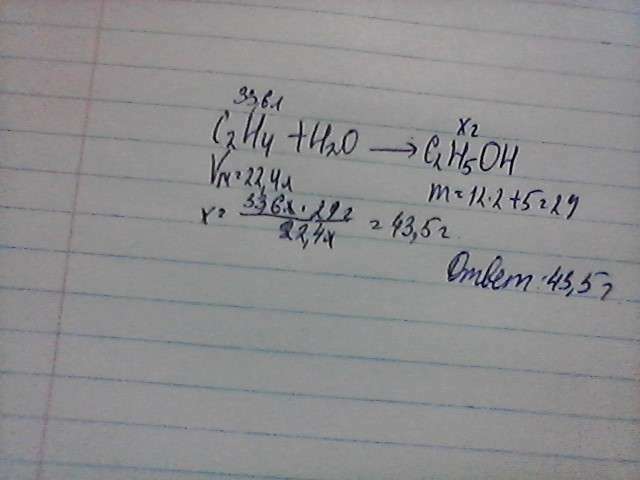 33,6л хг
C₂H₄ + H₂O → C₂H₅OH
Vм=22,4л m=12·2+5=29
x= 33,6л·29г / 22,4л = 43,5г
Ответ: 43,5г